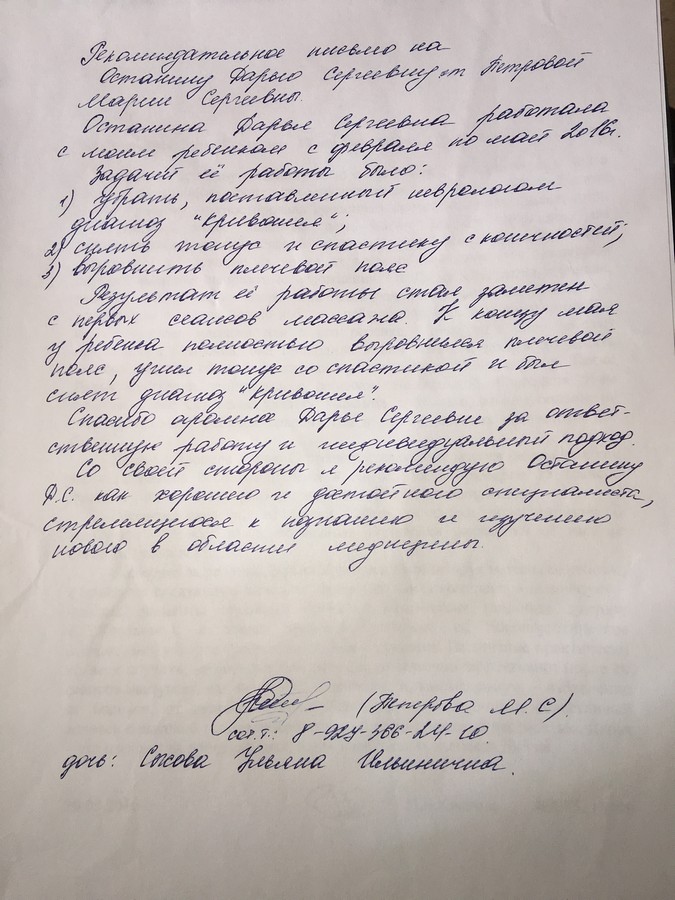 Рекомендательное письмо на
Останину Дарью Сергеевну от Петровой
Марии Сергеевны.
Останина Дарья Сергеевна работала
с моим ребенком с февраля по май 2016г.
Задачей её работы было:
1) убрать, поставленный неврологом
диагноз "Кривошея";
2) снять тонус и спастику с конечностей;
3) выровнить плечевой пояс
Результат её работы стал заметен
с первых сеансов массажа. К концу мая
у ребенка полностью выровнился плечевой
пояс, ушел тонус со спастикой и был
снят диагноз "Кривошея".
Спасибо огромное Дарье Сергеевне за ответ-
ственную работу и индивидуальный подход.
Со своей стороны я рекомендую Останину
Д.С. как хорошего и достойного специалиста,
стремящегося к познанию и изучению
нового в области медицины.
(Петрова М.С).
сот.т.: 8-927-366-24-10
дочь: Сысова Ульяна Ильинична.